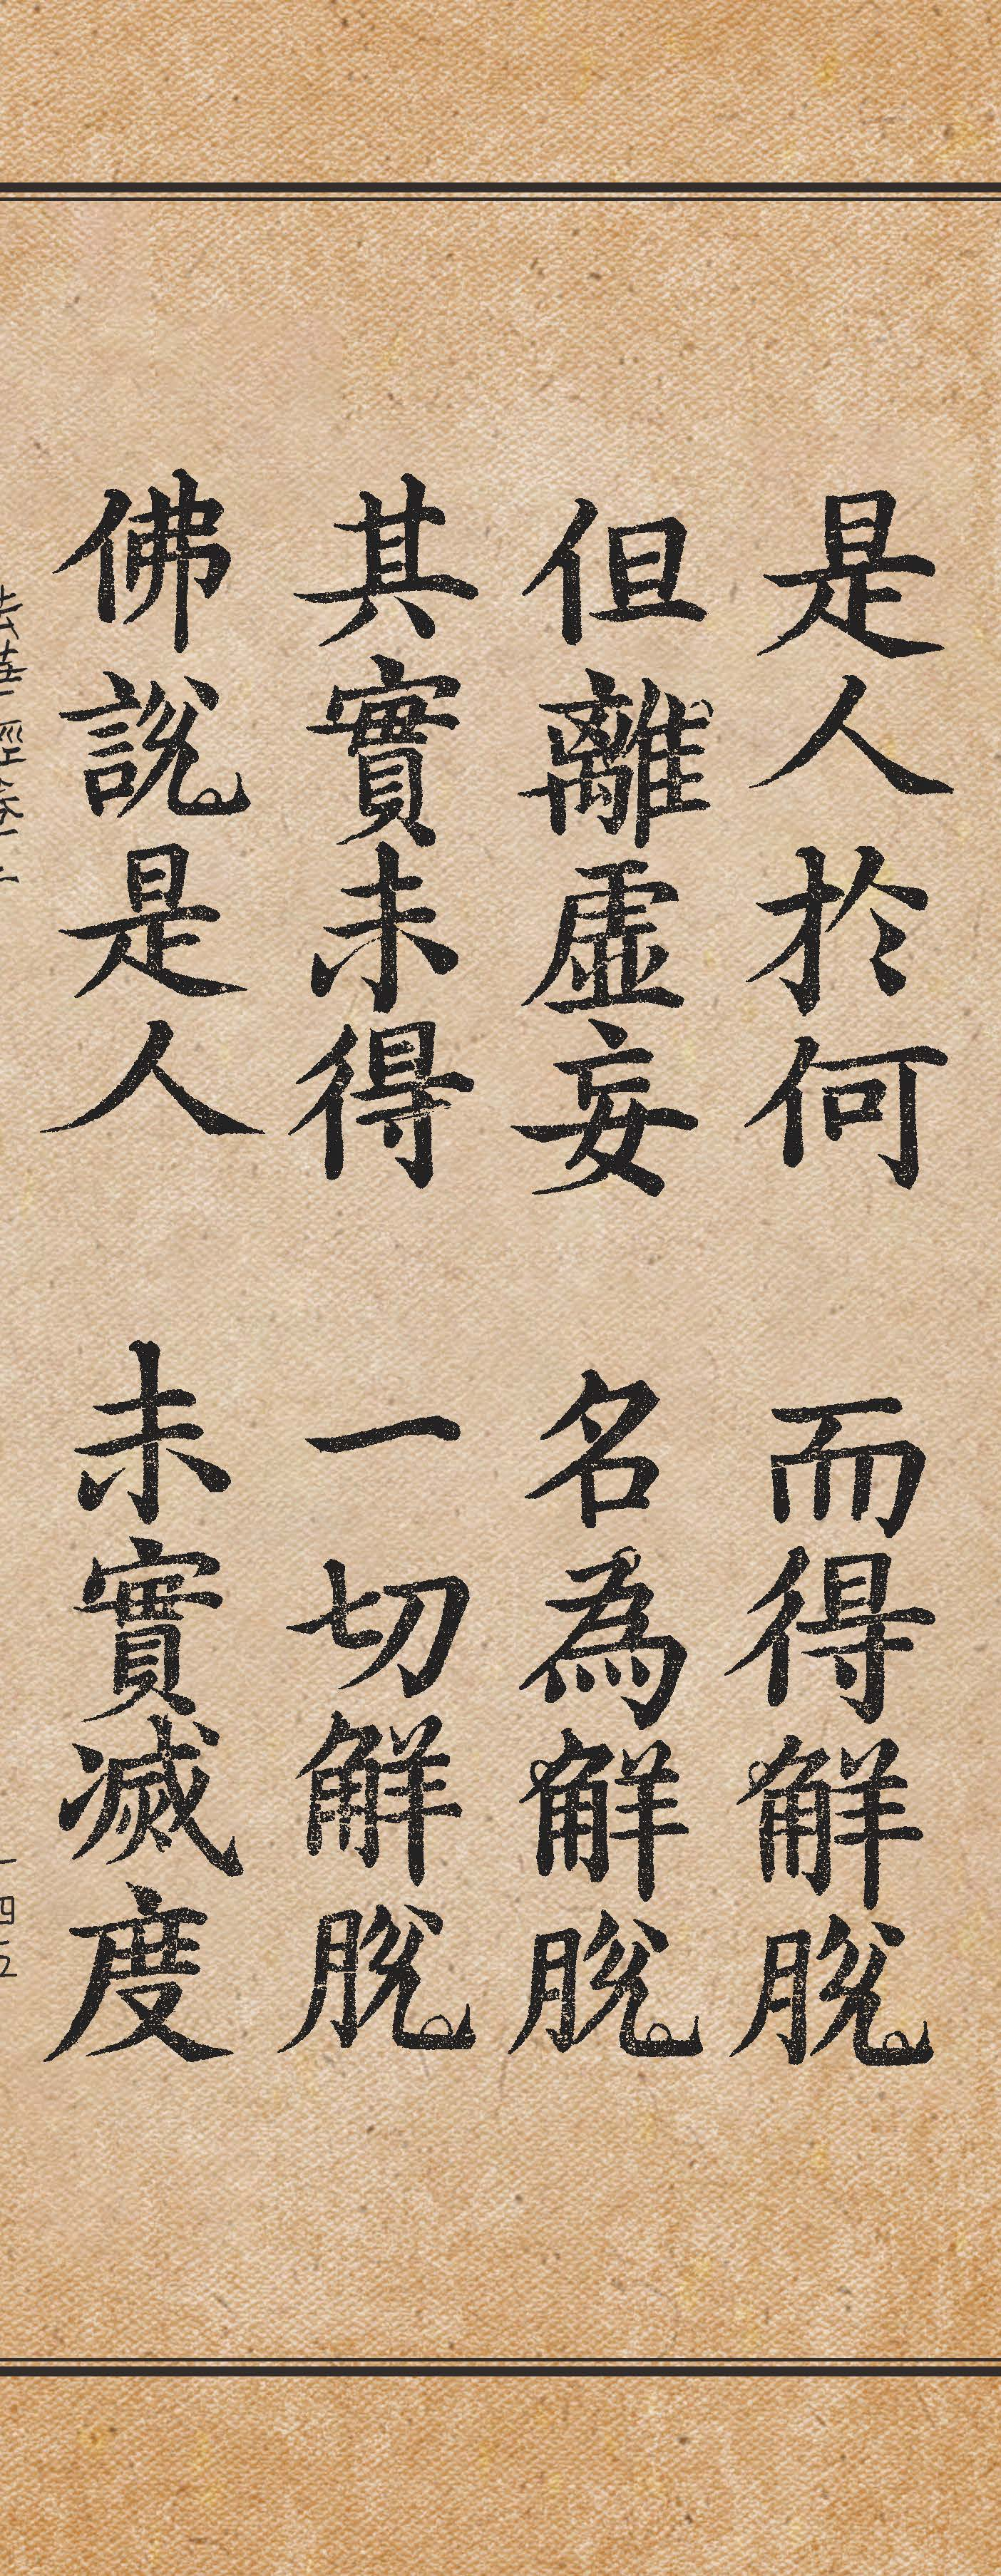 是人於何　而得解脫
但離虛妄　名為解脫
其實未得　一切解脫
佛說是人　未實滅度